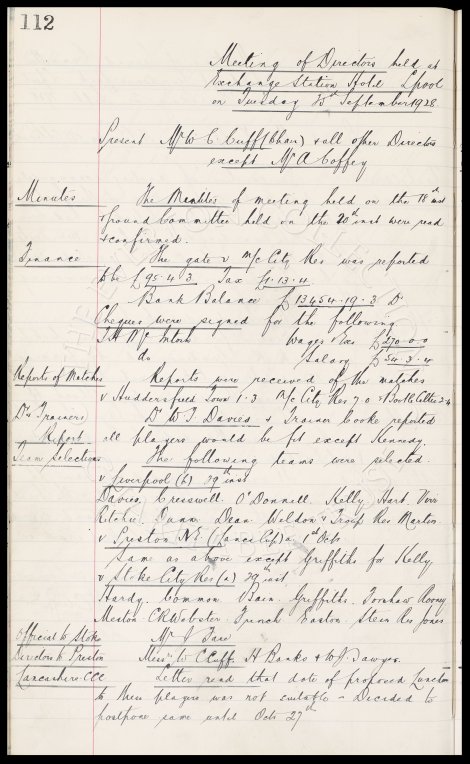 112
Meeting of Directors held at
Exchange Station Hotel L'pool
on Tuesday 25th September 1928
Present Mr W. C. Cuff (Chair) & all other Directors
except Mr A Coffey
Minutes The Minutes of meeting held on the 18th inst
& Ground Committee held on the 20th inst were read
& confirmed.
Finance The gate v M/c City Res was reported
to be £95.4.3 Tax £1.13.4
Bank Balance £13454.19.3 Dr
Cheques were signed for the following
Wages & tax £270.0.0
do Salary £54.3.4
Reports of Matches Reports were received of the matches
v Huddersfield Town 1.3 M/c City Res 7.0 v
Drs Trainers Dr W J Davies & Trainer Cooke reported
Report all players would be fit except Kennedy.
Team Selections The following teams were selected.
v Liverpool (h) 29th inst
Davies, Cresswell O'Donnell. Kelly Hart Virr
Ritchie. Dunn Dean Weldon & Troup Res Martin.
v Preston N.E. (Lancs Cup) a 1st Oct
Same as above except Griffiths for Kelly
v Stoke City Res (a) 29 inst
Hardy. Common Bain. Griffiths. Rooney
Meston. C R Webster. French. Easton. Stein Res Jones
Official to Stoke Mr J Fare
Directors to Preston Messrs W C Cuff. H Banks & W J Sawyer.
Lancashire CCC Letter read that date of proposed Luncheon
to these players was not suitable - Decided to
postpone same until Oct 27th